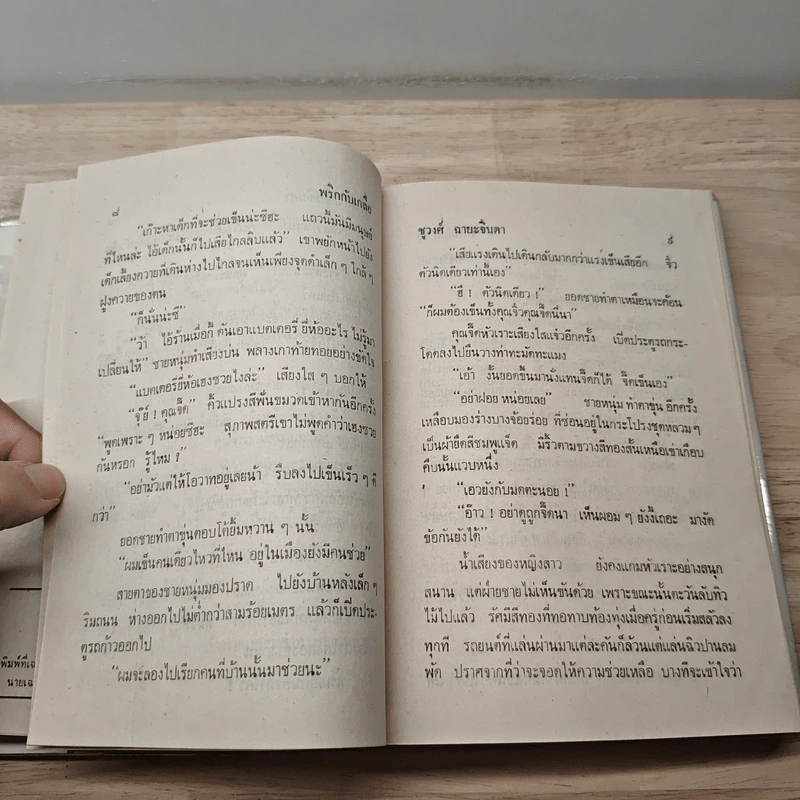 ๘
พริกกับเกลือ
"เก๊าะหาเด็กที่จะช่วยเข็นน่ะซีฮะ แถวนี้มันมีมนุษย์
ที่ไหนล่ะ ไอ้เด็กนั้นก็ไปเสียไกลลิบแล้ว" เขาพยักหน้าไปยัง
เด็กเลี้ยงควายที่เดินห่างไปไกลจนเห็นเพียงจุดดำเล็ก ๆ ใกล้ ๆ
ฝูงควายของตน
"ก็นั่นน่ะซี"
"ว้า ไอ้ร้านเมื่อกี้ ดันเอาแบตเตอรี่ ยี่ห้ออะไร ไม่รู้มา
เปลี่ยนให้" ชายหนุ่มทำเสียงบ่น พลางเกาท้ายทอยอย่างขัดใจ
"แบตเตอรี่ยี่ห้อเฮงซวยไงล่ะ" เสียงใส ๆ บอกให้
"จุ๊ย์ ! คุณจี๊ด" คิ้วแปรงสีฟันขมวดเข้าหากันอีกครั้ง
"พูดเพราะ ๆ หน่อยซีฮะ สุภาพสตรีเขาไม่พูดคำว่าเฮงซวย
กันหรอก รู้ไหม !"
"อย่ามัวแต่ให้โอวาทอยู่เลยน้า รีบลงไปเข็นเร็ว ๆ ดี
กว่า"
ยอดชายทำตาขุ่นตอบโต้ยิ้มหวาน ๆ นั้น
"ผมเข็นคนเดียวไหวที่ไหน อยู่ในเมืองยังมีคนช่วย"
สายตาของชายหนุ่มมองปราด ไปยังบ้านหลังเล็ก ๆ
ริมถนน ห่างออกไปไม่ต่ำกว่าสามร้อยเมตร แล้วก็เปิดประ-
ตูรถก้าวออกไป
"ผมจะลองไปเรียกคนที่บ้านนั้นมาช่วยนะ"
พิมพ์ที่เจ
นายเฉ
ชูวงศ์ ฉายะจินดา
๙
"เสียแรงเดินไปเดินกลับมากกว่าแรงเข็นเสียอีก จิ๋ว
ตัวนิดเดียวเท่านี้เอง"
"ฮึ ! ตัวนิดเดียว !" ยอดชายทำตาเหมือนจะค้อน
"ก็ผมต้องเข็นทั้งคุณจิ๋วคุณจี๊ดนี่นา"
คุณจี๊ดหัวเราะเสียงใสแจ๋วอีกครั้ง เปิดประตูรถกระ-
โดดลงไปยืนวางท่าทะมัดทะแมง
"เอ้า งั้นยอดขึ้นมานั่งแทนจี๊ดก็ได้ จี๊ดเข็นเอง"
"อย่าฝอย หน่อยเลย" ชายหนุ่ม ทำตาขุ่น อีกครั้ง
เหลือบมองร่างบางจ้อยร่อย ที่ซ่อนอยู่ในกระโปรงชุดหลวม ๆ
เป็นผ้ายืดสีชมพูแจ็ด มีริ้วตามขวางสีทองสั้นเหนือเข่าเกือบ
คืบนั้นแวบหนึ่ง
"เอวยังกับมดตะนอย !"
"อ๊าว ! อย่าดูถูกจี๊ดนา เห็นผอม ๆ ยังงี้เถอะ มางัด
ข้อกันยังได้"
น้ำเสียงของหญิงสาว ยังคงแกมหัวเราะอย่างสนุก
สนาน แต่ฝ่ายชายไม่เห็นขันด้วย เพราะขณะนั้นตะวันลับทิว
ไม้ไปแล้ว รัศมีสีทองที่ทอทาบท้องทุ่งเมื่อครู่ก่อนเริ่มสลัวลง
ทุกที รถยนต์ที่แล่นผ่านมาแต่ละคันก็ล้วนแต่แล่นฉิวปานลม
พัด ปราศจากที่ว่าจะจอดให้ความช่วยเหลือ บางทีจะเข้าใจว่า